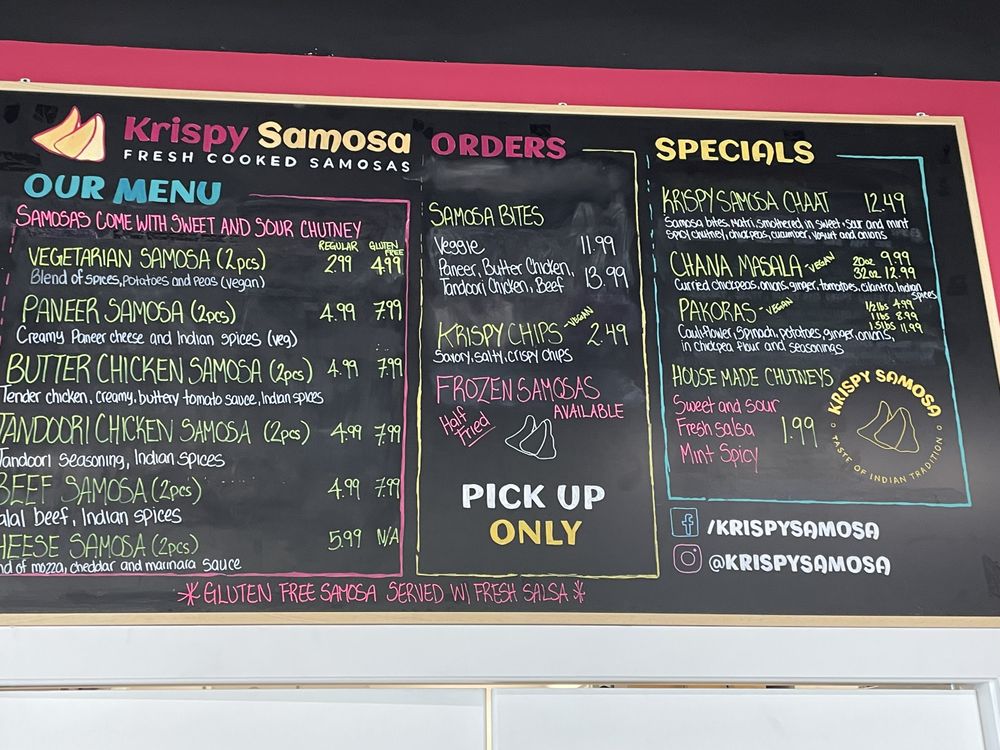 Krispy Samosa
FRESH COOKED SAMOSAS
OUR MENU
SAMOSAS COME WITH SWEET AND SOUR CHUTNEY
REGULAR GLUTEN FREE
VEGETARIAN SAMOSA (2pcs) 2.99 4.99
Blend of spices, potatoes and peas (vegan)
PANEER SAMOSA (2pcs) 4.99 7.99
Creamy Paneer cheese and Indian spices (veg)
BUTTER CHICKEN SAMOSA (2pcs) 4.99 7.99
Tender chicken, creamy, buttery tomato sauce, Indian spices
TANDOORI CHICKEN SAMOSA (2pcs) 4.99 7.99
Tandoori seasoning, Indian spices
BEEF SAMOSA (2pcs) 4.99 7.99
alal beef, Indian spices
HEESE SAMOSA (2pcs) 5.99 N/A
nd of mozza, cheddar and marinara sauce
ORDERS
SAMOSA BITES
Veggie 11.99
Paneer, Butter Chicken,
Tandoori Chicken, Beef 13.99
KRISPY CHIPS -VEGAN 2.49
Savory, salty, crispy chips
FROZEN SAMOSAS
AVAILABLE
Half
Fried
PICK UP
ONLY
SPECIALS
KRISPY SAMOSA CHAAT 12.49
Samosa bites, Matri, smothered in sweet + sour and mint
spicy chutney, chickpeas, cucumber, yogurt and onions
CHANA MASALA -VEGAN 20oz 9.99
32oz 12.99
Curried chickpeas, onions, ginger, tomatoes, cilantro, Indian
spices
PAKORAS -VEGAN 1/2lbs 4.99
1lbs 8.99
1.5lbs 11.99
Cauliflower, Spinach, potatoes, ginger, onions,
in chickpea flour and seasonings
HOUSE MADE CHUTNEYS
Sweet and sour
Fresh salsa 1.99
Mint Spicy
KRISPY SAMOSA
TASTE OF INDIAN TRADITION
/KRISPYSAMOSA
@KRISPYSAMOSA
* GLUTEN FREE SAMOSA SERVED W/ FRESH SALSA *